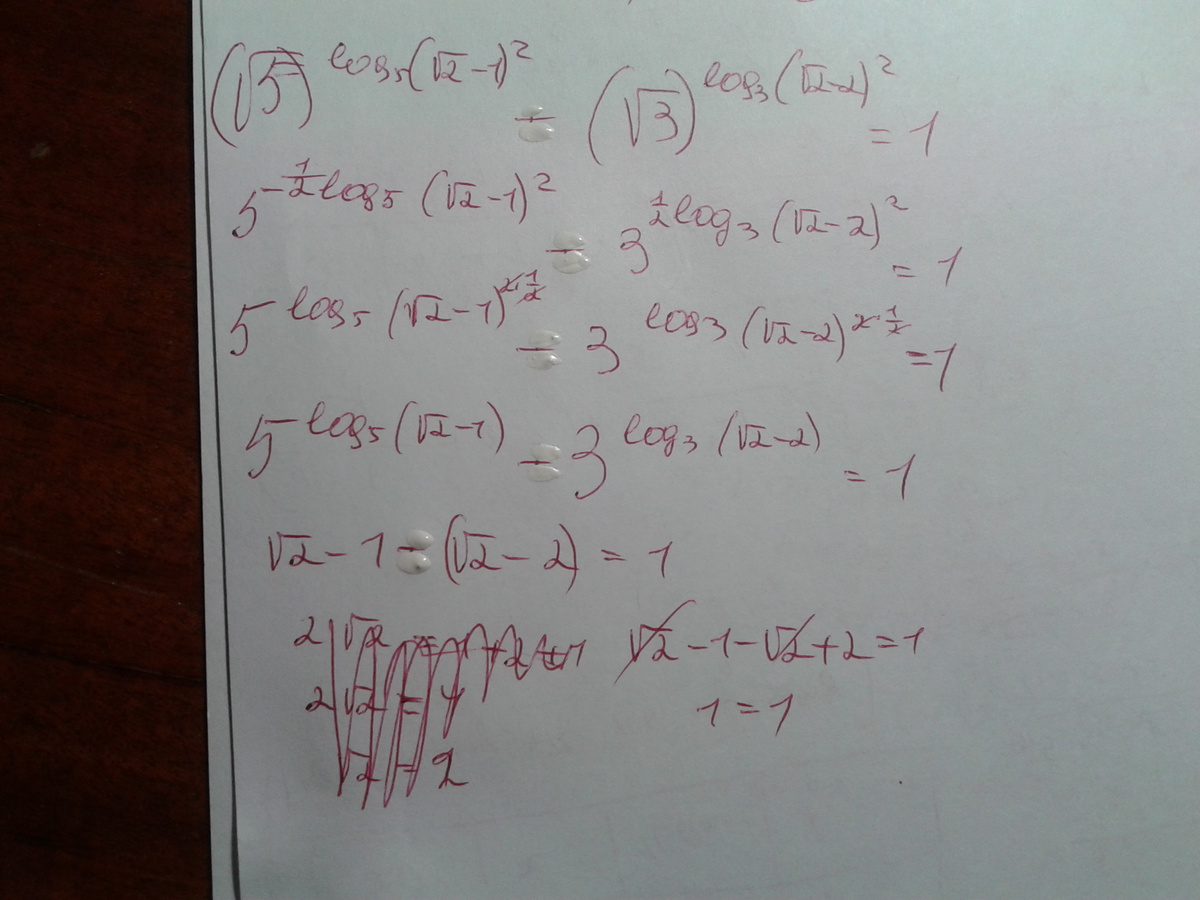 (√5)^log₅(√2-1)² - (√3)^log₃(√2-2)² = 1
5^½log₅(√2-1)² - 3^½log₃(√2-2)² = 1
5^log₅(√2-1)^2·½ - 3^log₃(√2-2)^2·½ = 1
5^log₅(√2-1) - 3^log₃(√2-2) = 1
√2-1-(√2-2) = 1
√2-1-√2+2=1
2√2 = 4
√2 = 2
1=1